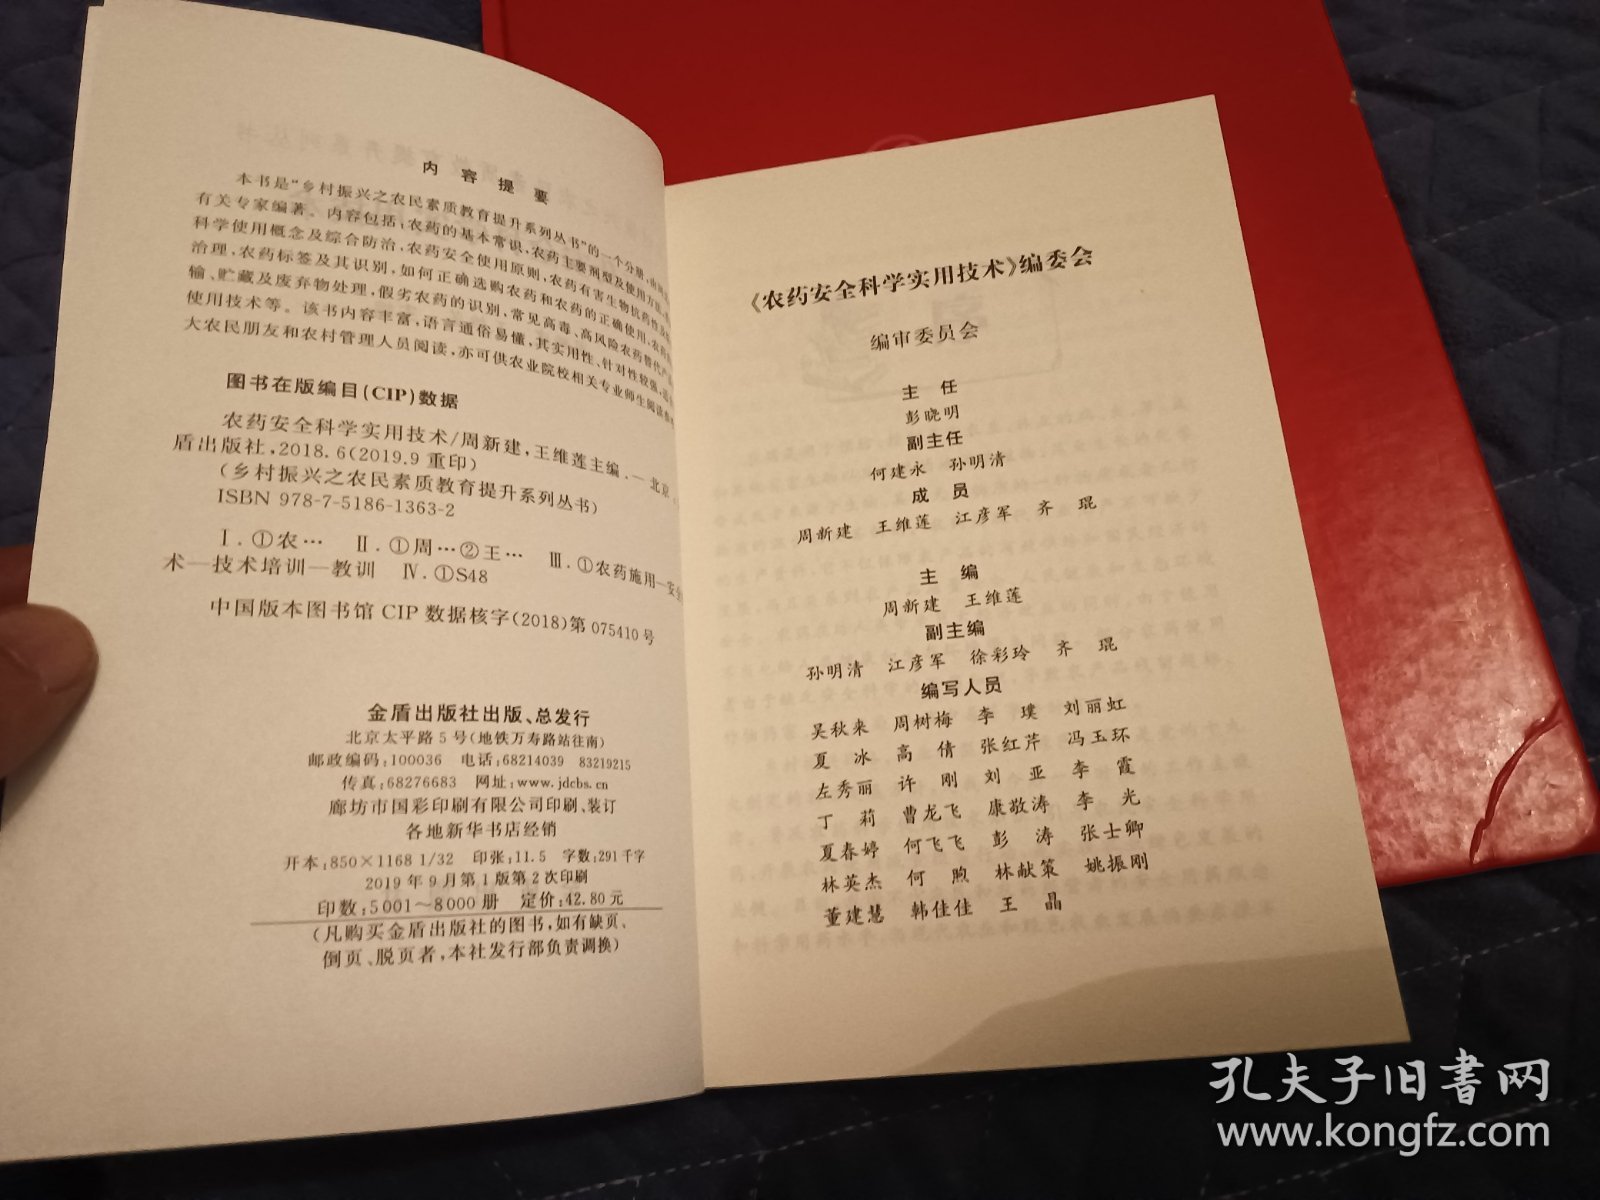 内容提要
本书是“乡村振兴之农民素质教育提升系列丛书”的一个分册,由
有关专家编著。内容包括:农药的基本常识,农药主要剂型及使用方法,
科学使用概念及综合防治,农药安全使用原则,农药有害生物抗药性及
治理,农药标签及其识别,如何正确选购农药和农药的正确使用,农药
输、贮藏及废弃物处理,假劣农药的识别,常见高毒、高风险农药替代产
使用技术等。该书内容丰富,语言通俗易懂,其实用性、针对性较强,适
大农民朋友和农村管理人员阅读,亦可供农业院校相关专业师生阅读
图书在版编目(CIP)数据
农药安全科学实用技术/周新建,王维莲主编.—北京:
盾出版社,2018.6(2019.9重印)
(乡村振兴之农民素质教育提升系列丛书)
ISBN 978-7-5186-1363-2
Ⅰ.①农… Ⅱ.①周…②王… Ⅲ.①农药施用—安全
术—技术培训—教训 Ⅳ.①S48
中国版本图书馆CIP数据核字(2018)第075410号
金盾出版社出版、总发行
北京太平路5号(地铁万寿路站往南)
邮政编码:100036 电话:68214039 83219215
传真:68276683 网址:www.jdcbs.cn
廊坊市国彩印刷有限公司印刷、装订
各地新华书店经销
开本:850×1168 1/32 印张:11.5 字数:291千字
2019年9月第1版第2次印刷
印数:5001~8000册 定价:42.80元
(凡购买金盾出版社的图书,如有缺页、
倒页、脱页者,本社发行部负责调换)
《农药安全科学实用技术》编委会
编审委员会
主 任
彭晓明
副主任
何建永 孙明清
成 员
周新建 王维莲 江彦军 齐 琨
主 编
周新建 王维莲
副主编
孙明清 江彦军 徐彩玲 齐 琨
编写人员
吴秋来 周树梅 李 璞 刘丽虹
夏 冰 高 倩 张红芹 冯玉环
左秀丽 许 刚 刘 亚 李 霞
丁 莉 曹龙飞 康敬涛 李 光
夏春婷 何飞飞 彭 涛 张士卿
林英杰 何 煦 林献策 姚振刚
董建慧 韩佳佳 王 晶
孔夫子旧书网
www.kongfz.com